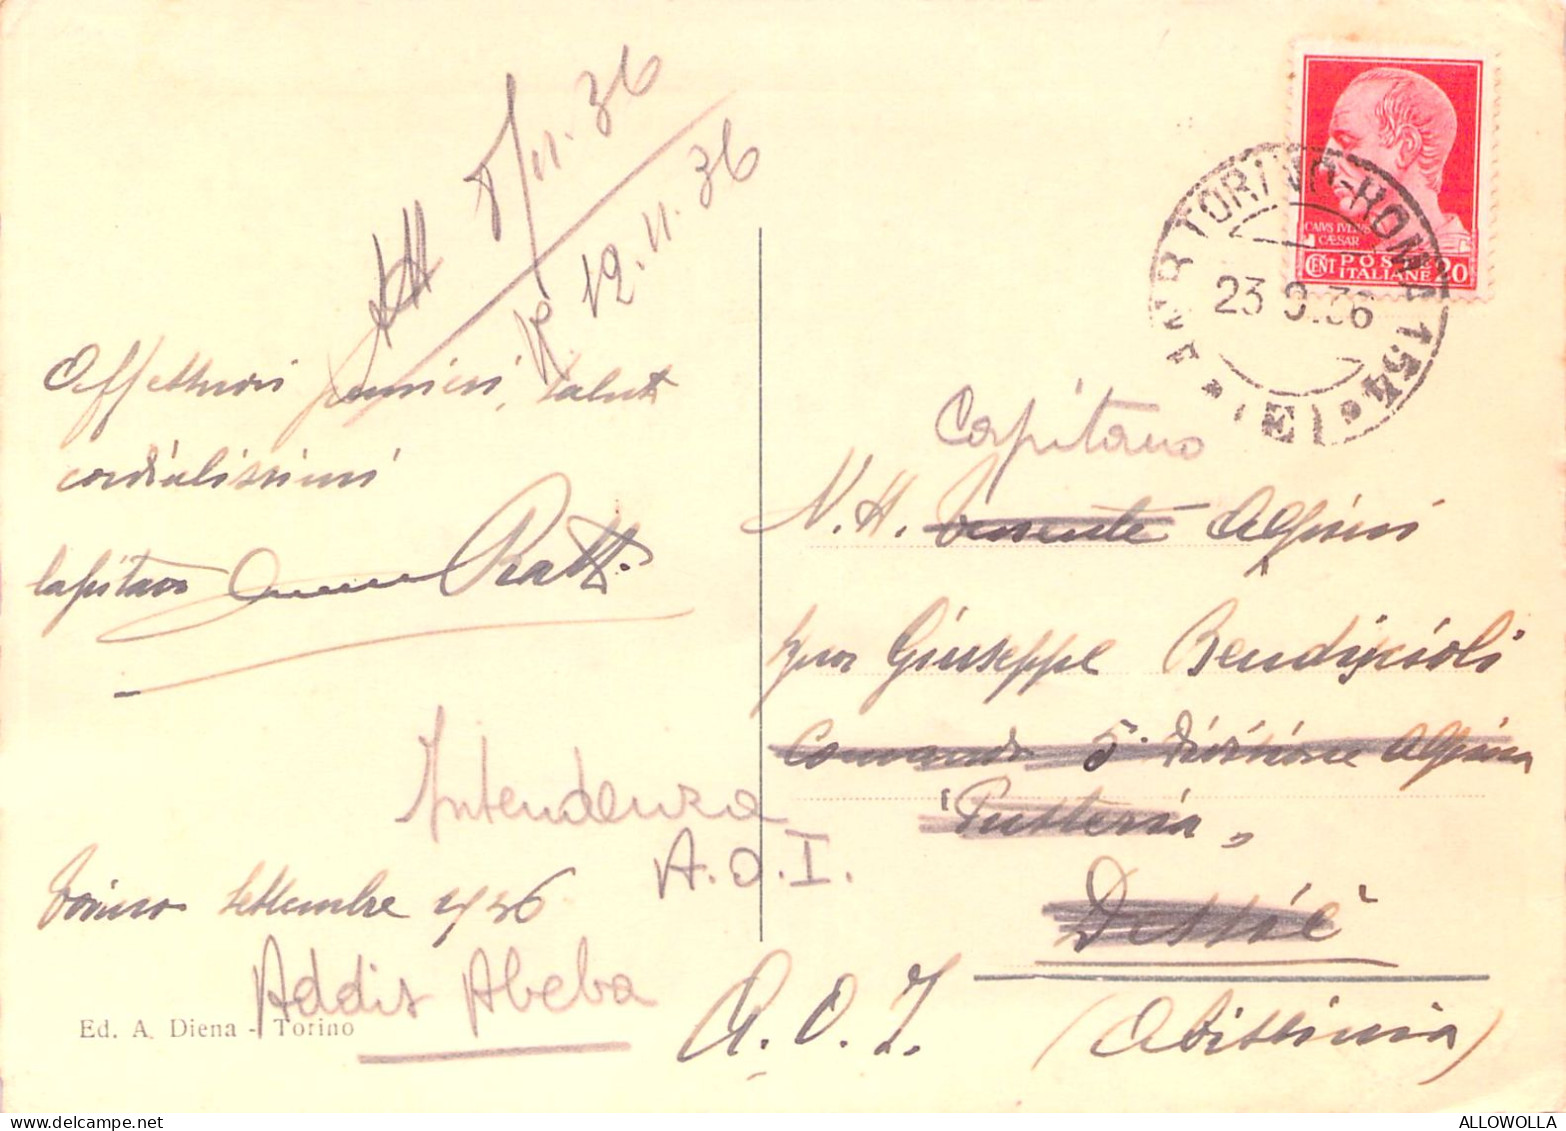 8/11.36
R 12.11.36
Affettuosi pensieri, saluti
cordialissimi
Capitano Ratti
Intendenza
A.O.I.
Torino Settembre 1936
Addis Abeba
Ed. A. Diena - Torino
CAIVS IVLIVS
CÆSAR
CENT POSTE ITALIANE 20
TORINO-ROMA 154 (E)
23 9.36
Capitano
N.H. Tenente Alpini
Giuseppe Bendiscioli
Comando 5ª Divisione Alpina
Pusteria,
Dessiè
A.O.I. (Abissinia)
ALLOWOLLA